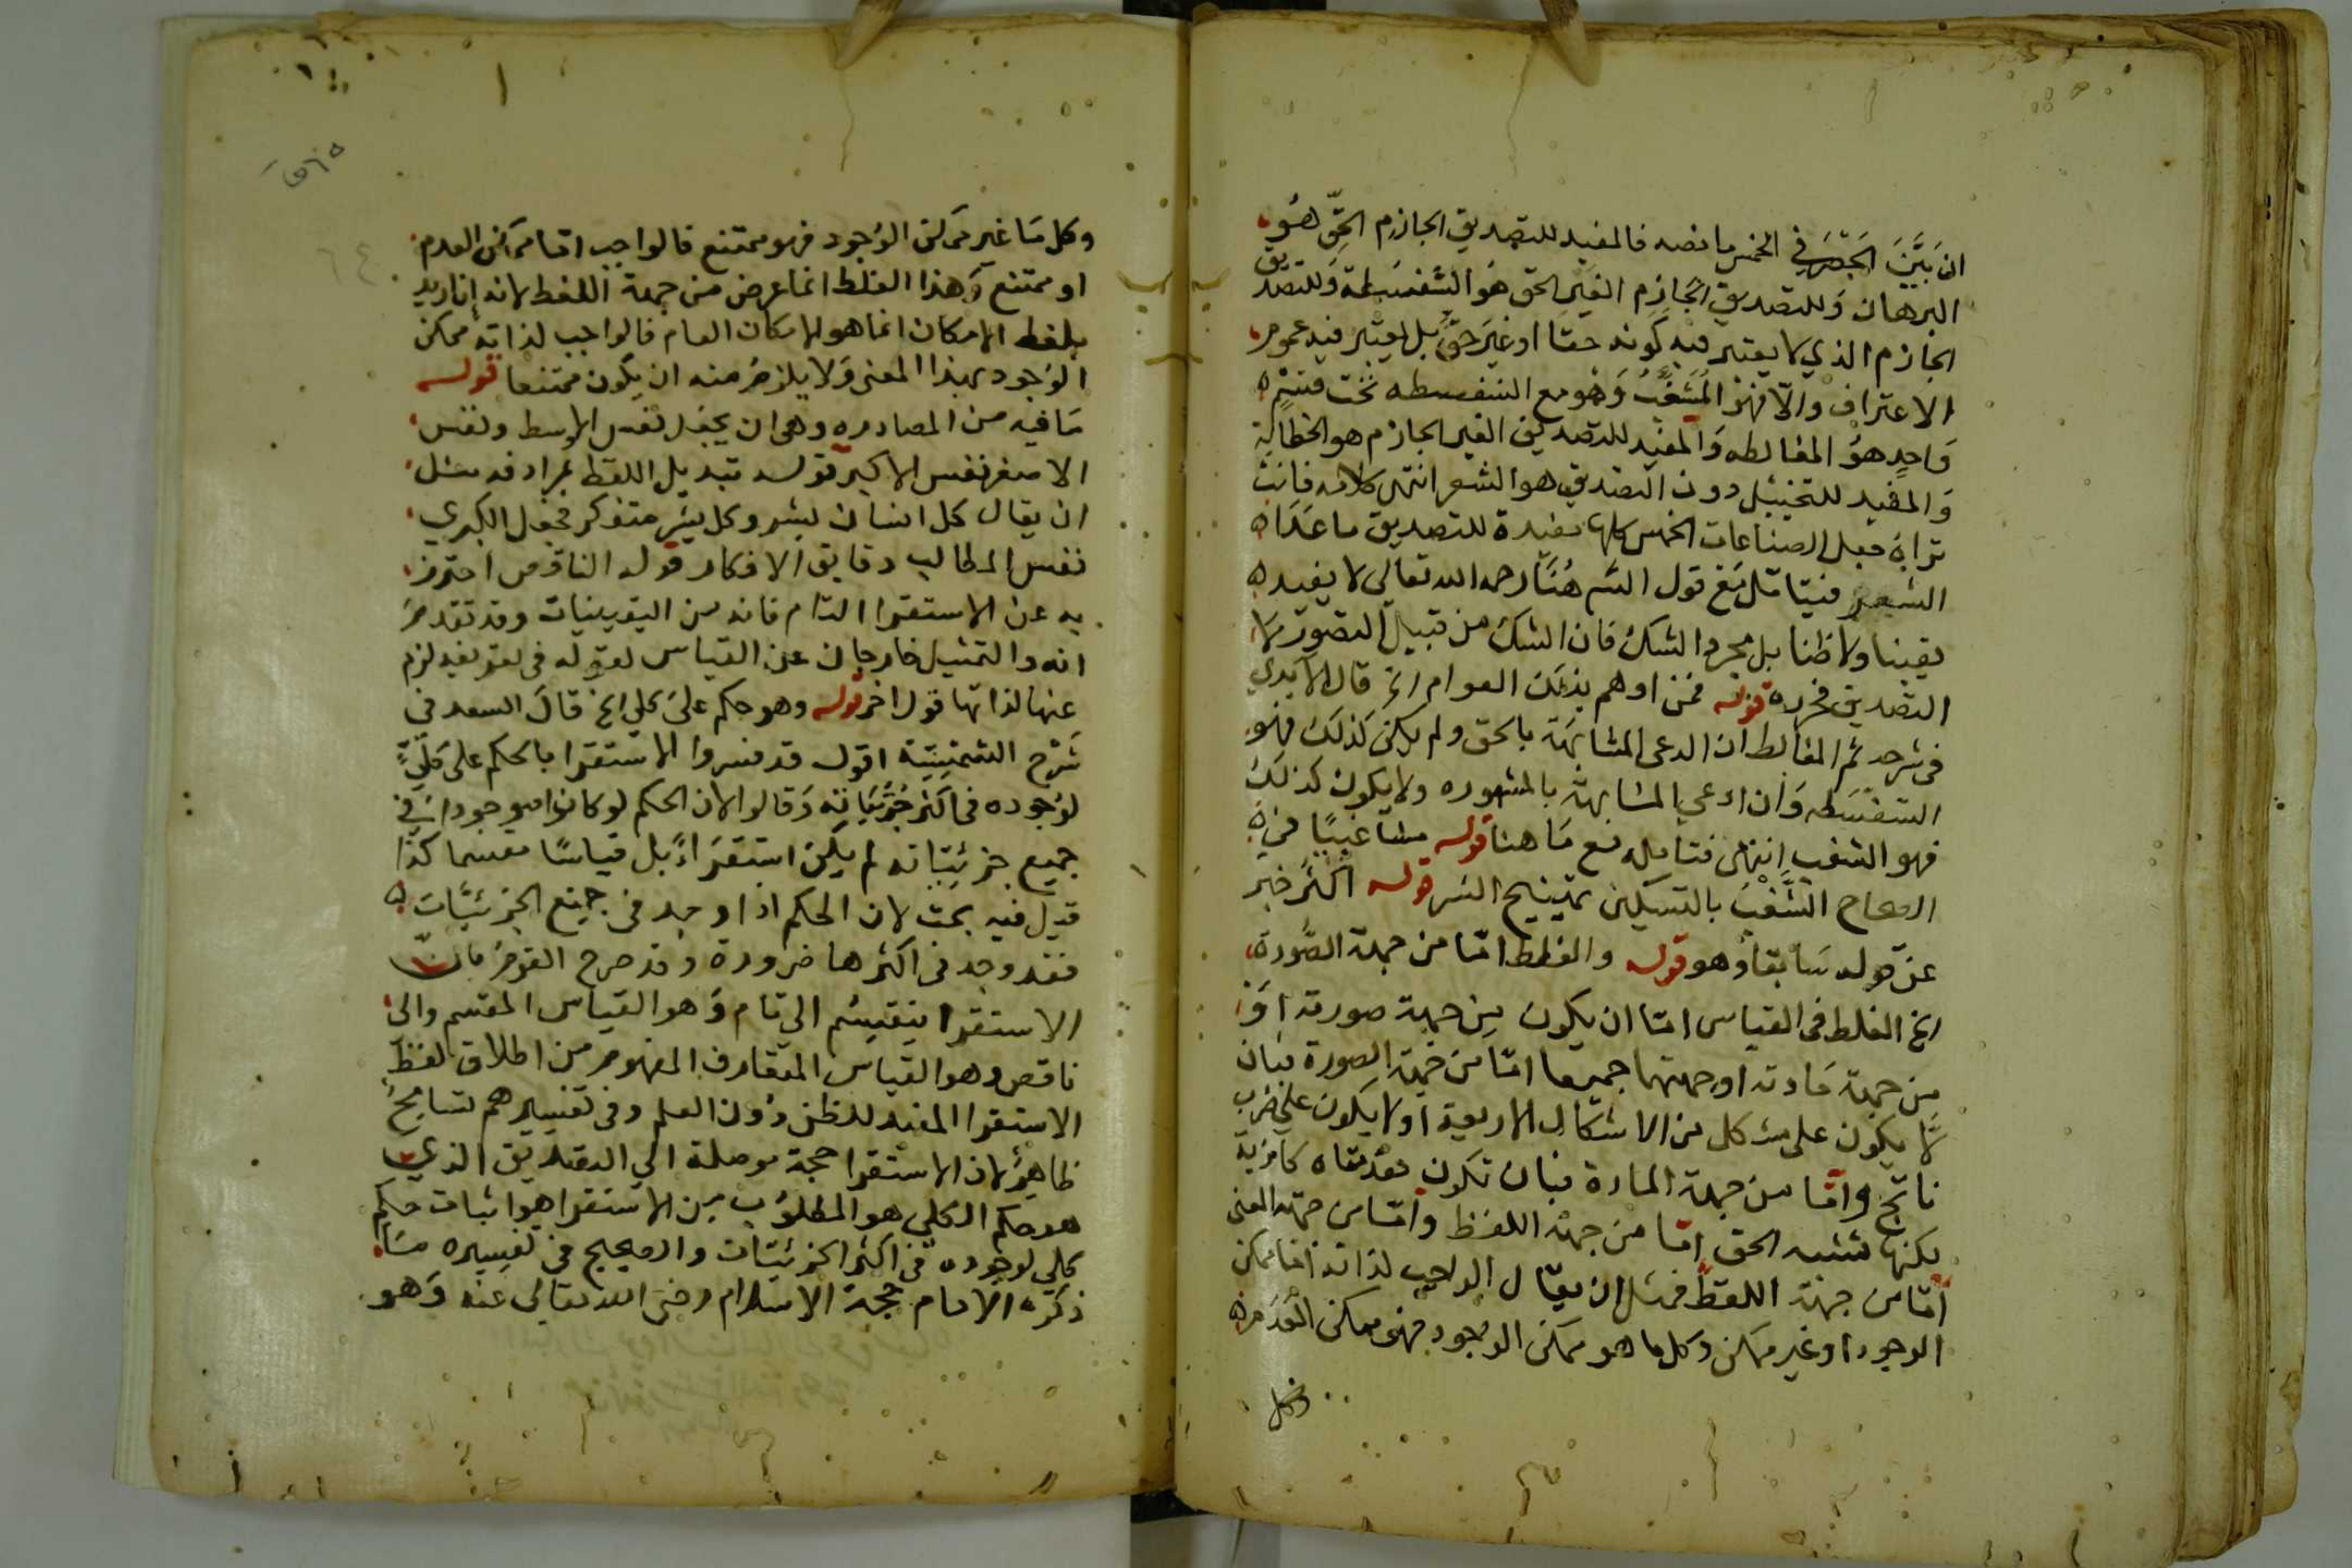 ان بَيَّنَ الحَصْرَ في الخمس ما نصه فالمفيد للتصديق الجازم الحقّ هو
البرهان وللتصديق الجازم الغير الحق هو السفسطة وللتصديق
الجازم الذي لا يعتبر فيه كونه حقا او غير حق بل يعتبر فيه عموم
الاعتراف والا فهو الشغب وهو مع السفسطه تحت قسم
واحد هو المغالطه والمفيد للتصديق الغير الجازم هو الخطابة
والمفيد للتخييل دون التصديق هو الشعر انتهى كلامه فانت
تراه جعل الصناعات الخمس كلها مفيدة للتصديق ما عدا
الشعر فيتامل مع قول الشم هنا رحمه الله تعالى لا يفيد
يقينا ولا ظنا بل مجرد الشك فان الشك من قبيل التصور لا
التصديق فحرره قوله فمن اوهم بذلك العوام الخ قال الابدي
في شرحه ثم المغالط ان ادعى المشابهة بالحق ولم يكن كذلك فهو
السفسطه وان ادعي المشابهة بالمشهوره ولا يكون كذلك
فهو الشغب انتهى فتامله مع ما هنا قوله مشاغبيا في
الصحاح الشَّغْبُ بالتسكين تهييج الشر قوله اكثر خبر
عن قوله سابقا وهو قوله والغلط اما من جهة الصورة
الخ الغلط في القياس اما ان يكون من جهة صورته او
من جهة مادته او جهتهما جميعا اما من جهة الصورة فبان
لا يكون على شكل من الاشكال الاربعة او لا يكون على ضرب
ناتج واما من جهة المادة فبان تكون مقدمتاه كاذبة
لكنها تشبه الحق اما من جهة اللفظ واما من جهة المعنى
اما من جهة اللفظ فمثل ان يقال الواجب لذاته اما ممكن
الوجود او غير ممكن وكل ما هو ممكن الوجود فهو ممكن العدم
وكل
وكل ما غير ممكن الوجود فهو ممتنع فالواجب اما ممكن العدم
او ممتنع وهذا الغلط انما عرض من جهة اللفظ لانه
بلفظ الامكان انما هو الامكان العام فالواجب لذاته ممكن
الوجود بهذا المعنى ولا يلزم منه ان يكون ممتنعا قوله
ما فيه من المصادره وهى ان يجعل نفس الاوسط ونفس
الاصغر نفس الاكبر قوله تبديل اللفظ بمرادفه مثل
ان يقال كل انسان بشر وكل بشر متفكر فجعل الكبري
نفس المطالب دقايق الافكار قوله الناقص احترز
به عن الاستقرا التام فانه من اليقينيات وقد تقدم
انه والتمثيل خارجان عن القياس لقوله في تعريفه لزم
عنها لذاتها قول اخر قوله وهو حكم على كلي الخ قال السعد في
شرح الشمسية اقول قد فسروا الاستقرا بالحكم على كلي
لوجوده في اكثر جزئياته وقالوا لان الحكم لو كان موجودا في
جميع جزئياته لم يكن استقراءً بل قياسًا مقسما كذا
قيل فيه بحث لان الحكم اذا وجد في جميع الجزئيات
فقد وجد في اكثرها ضرورة وقد صرح القوم بان
الاستقرا ينقسم الى تام وهو القياس المقسم والى
ناقص وهو القياس المتعارف المفهوم من اطلاق لفظ
الاستقرا المفيد للظن دون العلم وفي تفسيرهم تسامح
ظاهر لان الاستقرا حجة موصلة الي التصديق الذي
هو حكم الكلي هو المطلوب من الاستقرا هو اثبات حكم
كلي لوجوده في اكثر الجزئيات والصحيح في تفسيره ما
ذكره الامام حجة الاسلام رضى الله تعالى عنه وهو